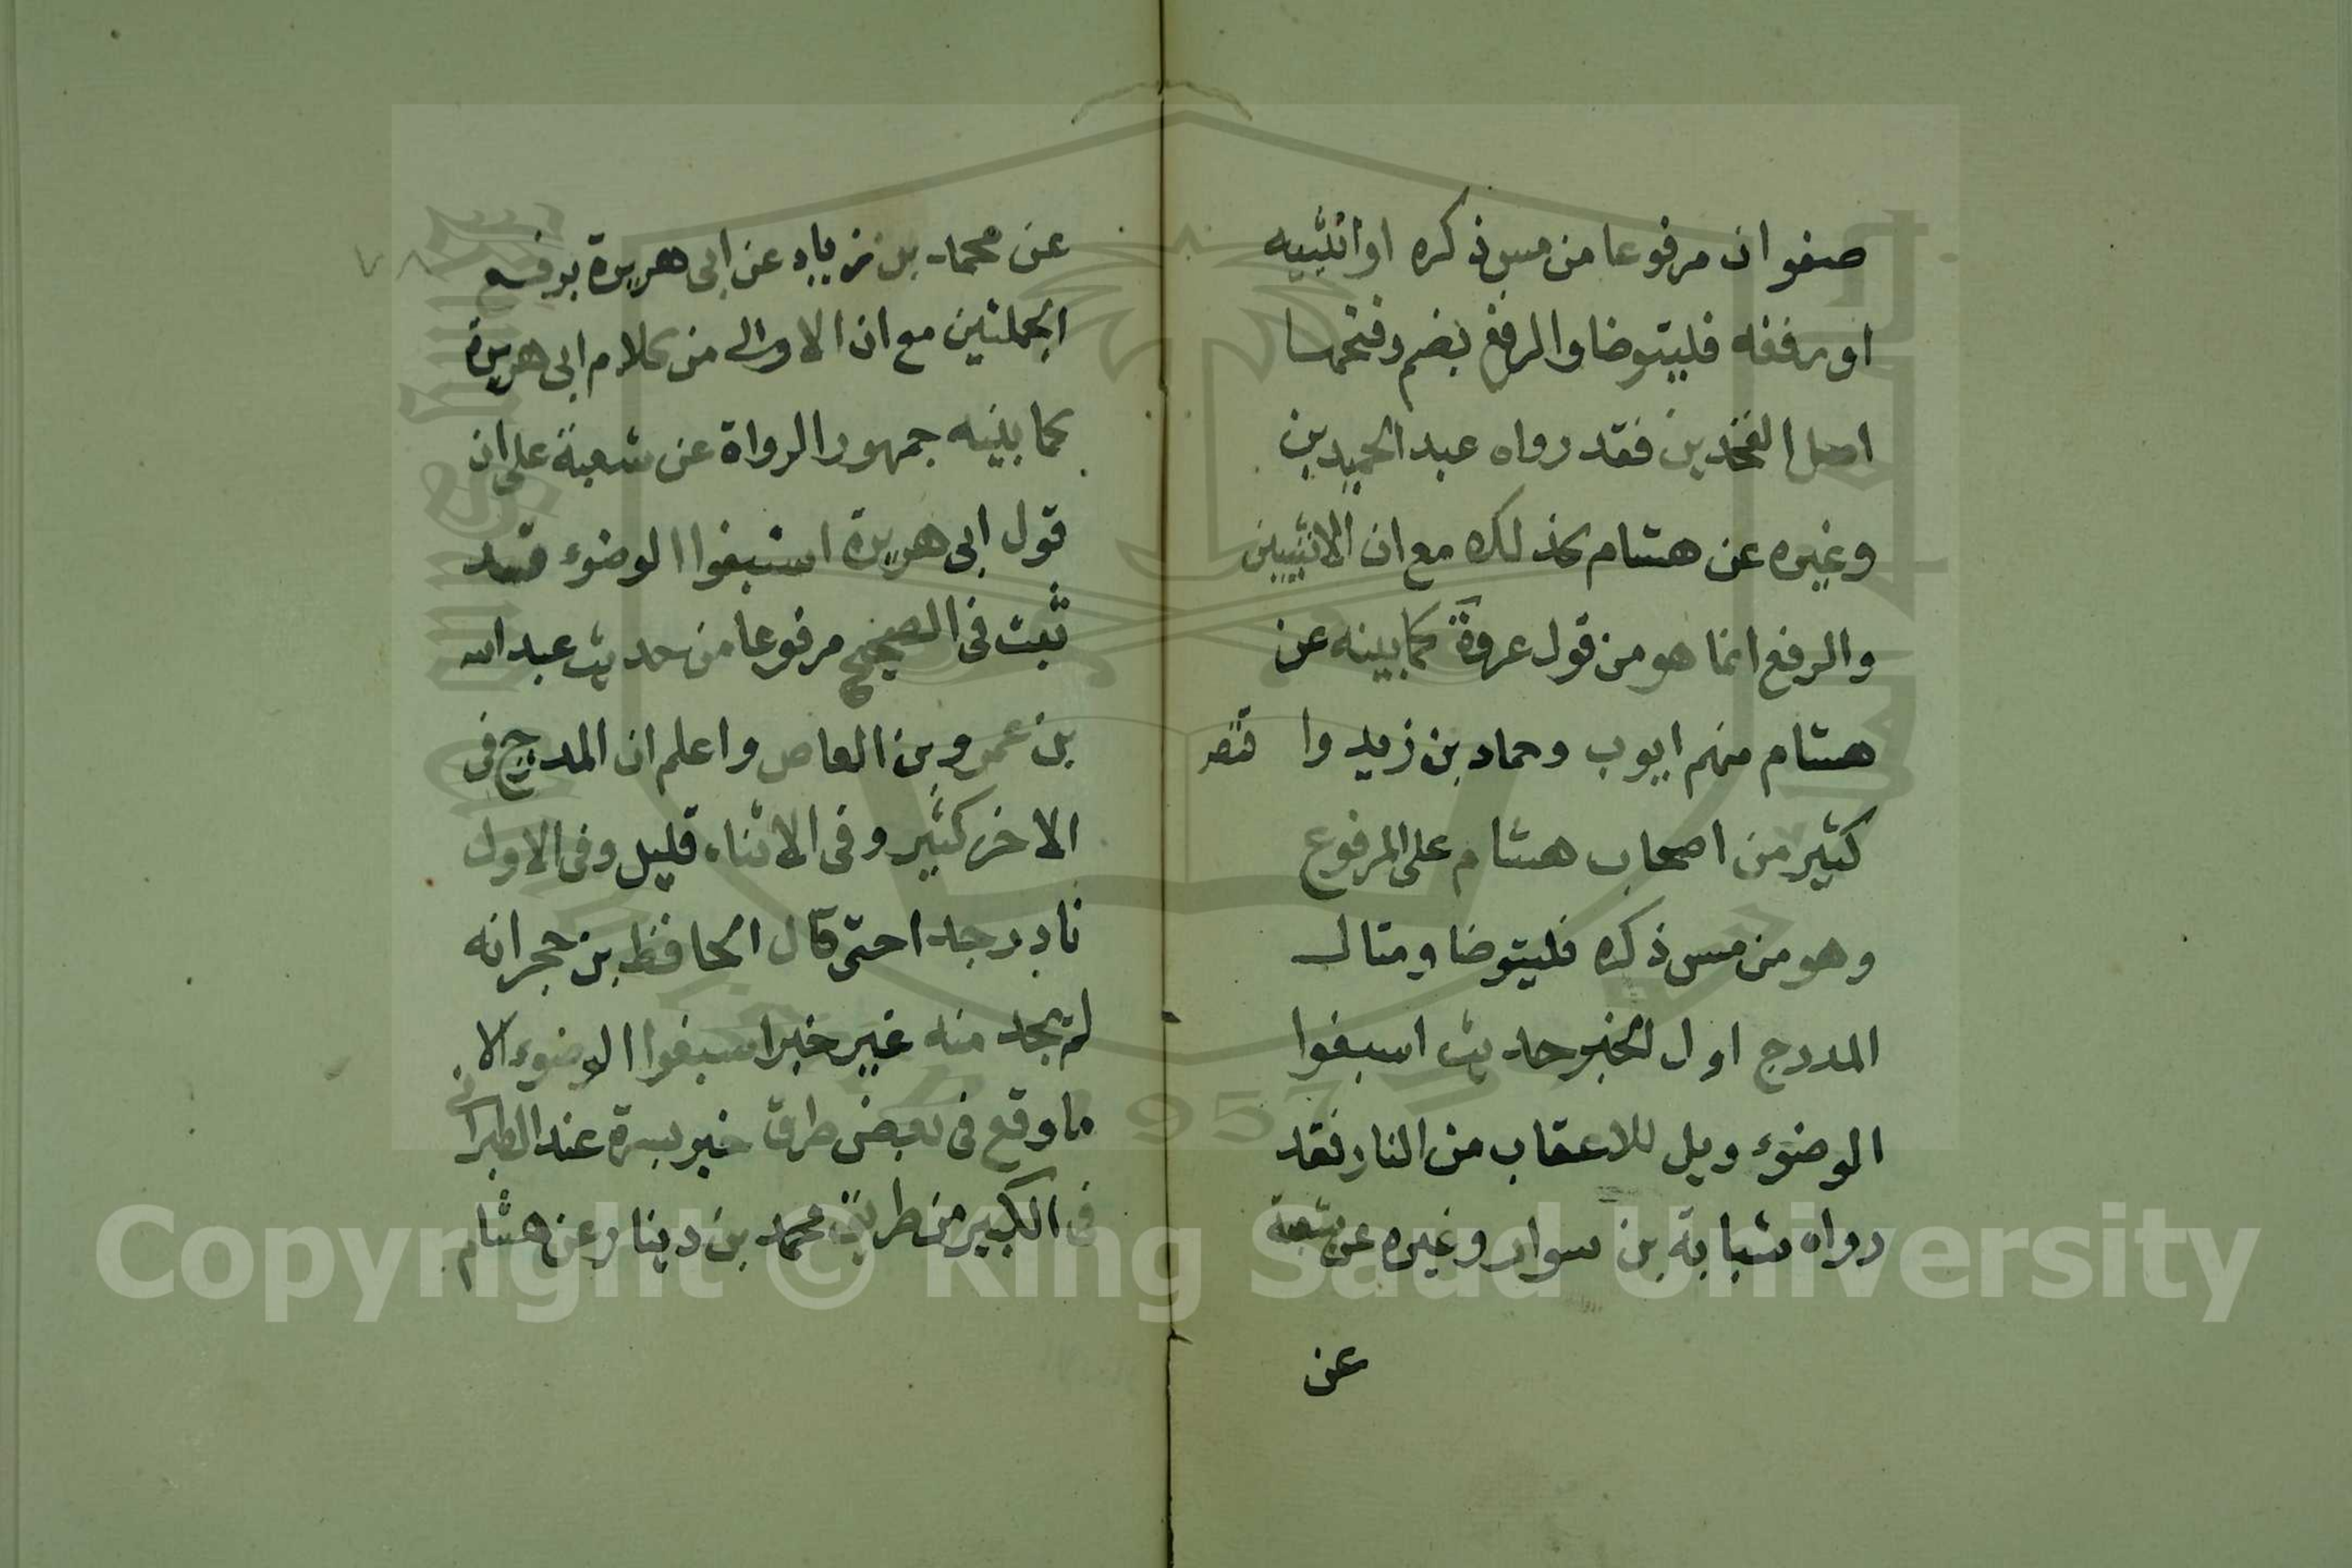 صفوان مرفوعا من مس ذكره او انثييه
او رفغه فليتوضا والرفغ بضم وفتحها
اصل الفخذين فقد رواه عبد الحميد بن
وغيره عن هشام كذلك مع ان الانثيين
والرفع انما هو من قول عروة كما بينه عن
هشام منهم ايوب وحماد بن زيد وا قتصر
كثير من اصحاب هشام على المرفوع
وهو من مس ذكره فليتوضا ومثال
المدرج اول الخبر حديث اسبغوا
الوضوء ويل للاعقاب من النار فقد
رواه شبابة بن سوار وغيره عن شعبة
عن
عن محمد بن زياد عن ابى هريرة برفع
الجملتين مع ان الاولى من كلام ابى هريرة
كما بينه جمهور الرواة عن شعبة على ان
قول ابى هريرة اسبغوا الوضوء قد
ثبت فى الصحيح مرفوعا من حديث عبد الله
بن عمرو بن العاص واعلم ان المدرج فى
الاخر كثير وفى الاثناء قليل وفى الاول
نادر جدا حتى قال الحافظ بن حجر انه
لم يجد منه غير خبر اسبغوا الوضوء الا
ما وقع فى بعض طرق خبر بسرة عند الطبرانى
فى الكبير من طريق محمد بن دينار عن هشام
Copyright © King Saud University
1957